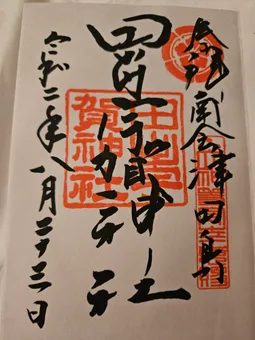 奉拝 南会津田島
田出宇賀神社
令和二年八月二十三日
田出宇
賀神社